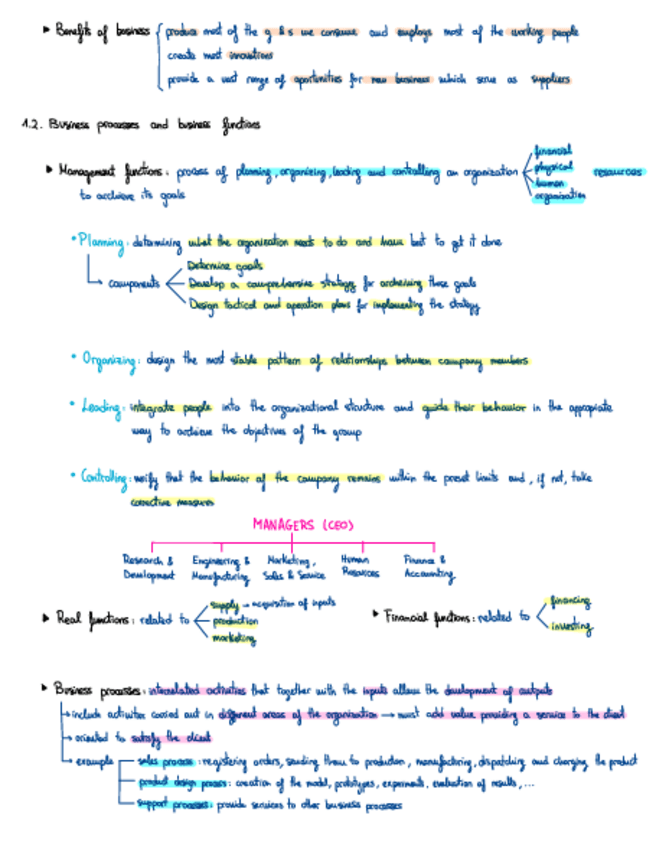 ▸ Benefits of business { produce most of the g & s we consume and employs most of the working people
create most innovations
provide a vast range of oportunities for new business which serve as suppliers
1.2. Business processes and business functions
▸ Management functions: process of planning, organizing, leading and controlling an organization < financial
physical
human
organization
resources
to achieve its goals
• Planning: determining what the organization needs to do and how best to get it done
↳ components < Determine goals
Develop a comprehensive strategy for archieving those goals
Design tactical and operation plans for implementing the strategy
• Organizing: design the most stable pattern of relationships between company members
• Leading: integrate people into the organizational structure and guide their behavior in the appropiate
way to achieve the objectives of the group
• Controlling: verify that the behavior of the company remains within the preset limits and, if not, take
corrective measures
MANAGERS (CEO)
Research & Development
Engineering & Manufacturing
Marketing, Sales & Service
Human Resources
Finance & Accounting
▸ Real functions: related to < supply → acquisition of inputs
production
marketing
▸ Financial functions: related to < financing
investing
▸ Business processes: interrelated activities that together with the inputs allow the development of outputs
↳ include activities carried out in different areas of the organization → must add value providing a service to the client
↳ oriented to satisfy the client
↳ example sales process: registering orders, sending them to production, manufacturing, dispatching and charging the product
product design process: creation of the model, prototypes, experiments, evaluation of results,...
support processes: provide services to other business processes